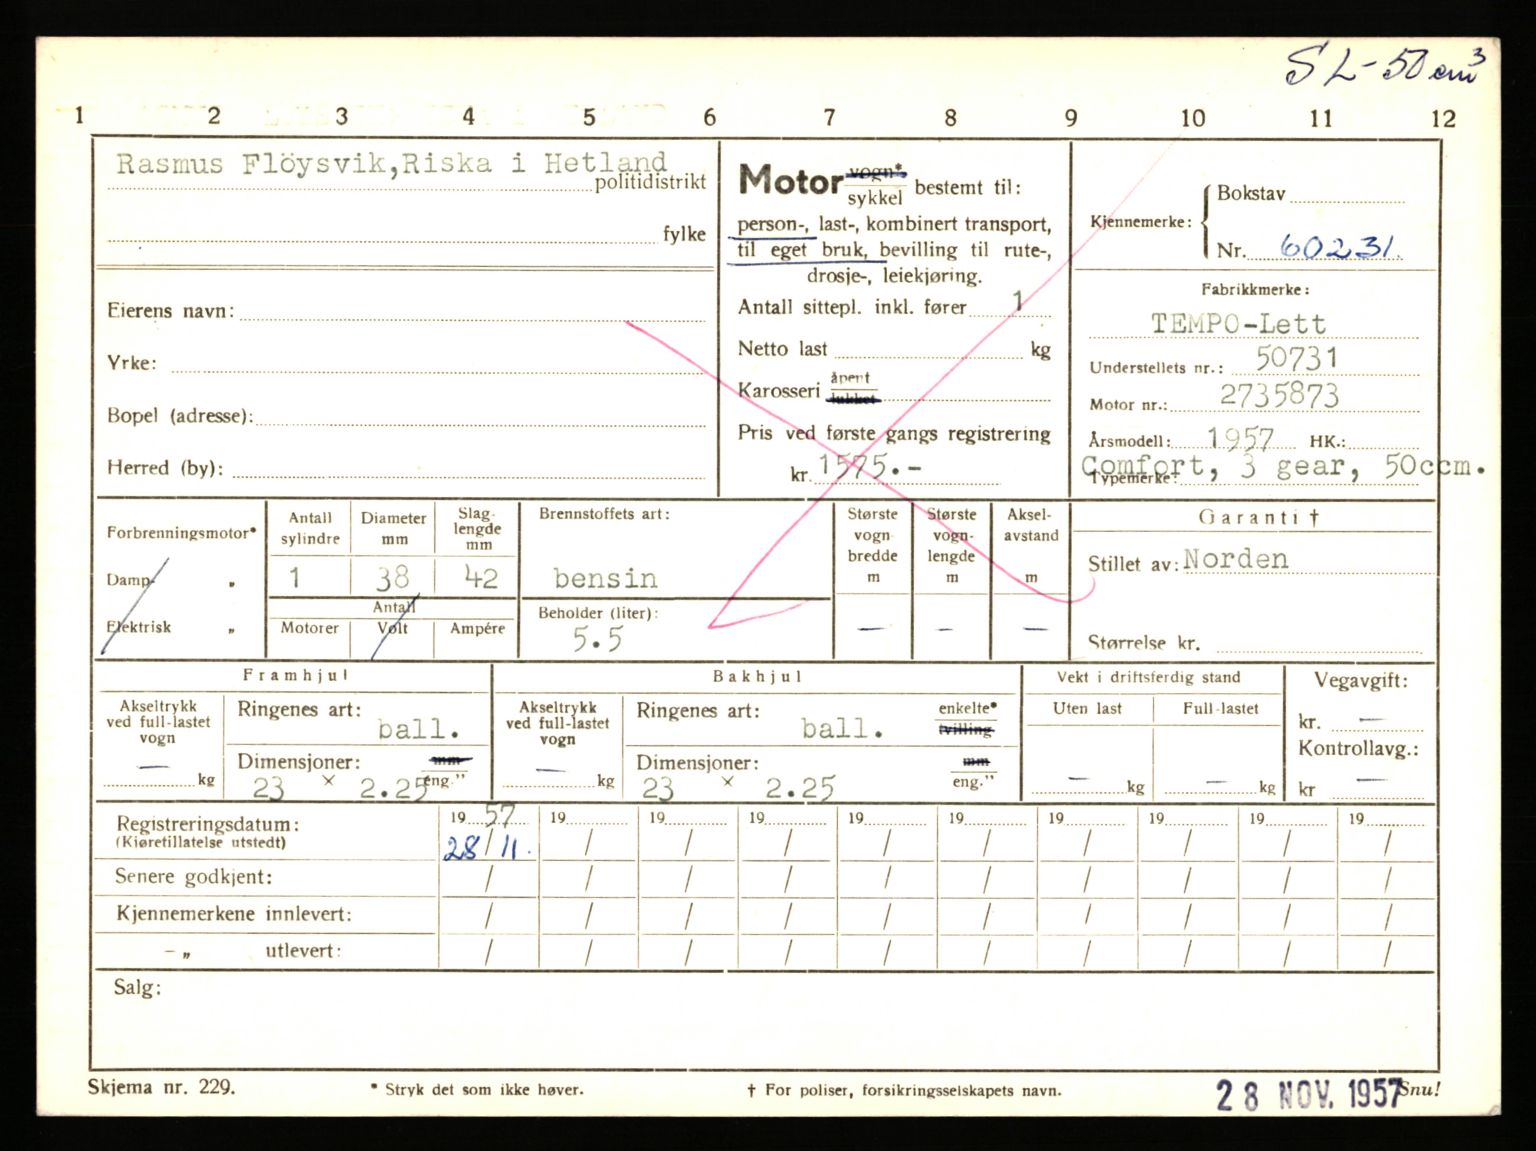 SL-50 cm³
1 2 3 4 5 6 7 8 9 10 11 12
Rasmus Flöysvik, Riska i Hetland
politidistrikt
fylke
Eierens navn:
Yrke:
Bopel (adresse):
Herred (by):
Motor vogn* sykkel bestemt til:
person-, last-, kombinert transport,
til eget bruk, bevilling til rute-,
drosje-, leiekjøring.
Antall sittepl. inkl. fører 1
Netto last kg
Karosseri åpent lukket
Pris ved første gangs registrering
kr. 1575.-
Kjennemerke: Bokstav
Nr. 60231.
Fabrikkmerke:
TEMPO-Lett
Understellets nr.: 50731
Motor nr.: 2735873
Årsmodell: 1957 HK.:
Typemerke: Comfort, 3 gear, 50ccm.
Forbrenningsmotor*
Damp- „
Elektrisk „
Antall sylindre
1
Diameter mm
38
Slaglengde mm
42
Antall
Motorer Volt Ampére
Brennstoffets art:
bensin
Beholder (liter):
5.5
Største vognbredde m
—
Største vognlengde m
—
Akselavstand m
—
Garanti †
Stillet av: Norden
Størrelse kr.
Framhjul
Akseltrykk ved full-lastet vogn
— kg
Ringenes art:
ball.
Dimensjoner: mm
23 x 2.25 eng."
Bakhjul
Akseltrykk ved full-lastet vogn
— kg
Ringenes art: enkelte*
ball. tvilling
Dimensjoner: mm
23 x 2.25 eng."
Vekt i driftsferdig stand
Uten last Full-lastet
— kg — kg
Vegavgift:
kr. —
Kontrollavg.:
kr —
Registreringsdatum: 19 57 19 19 19 19 19 19 19 19 19
(Kjøretillatelse utstedt) 28/11. / / / / / / / / /
Senere godkjent: / / / / / / / / / /
Kjennemerkene innlevert: / / / / / / / / / /
– „ utlevert: / / / / / / / / / /
Salg:
Skjema nr. 229.
* Stryk det som ikke høver.
† For poliser, forsikringsselskapets navn.
28 NOV. 1957
Snu!